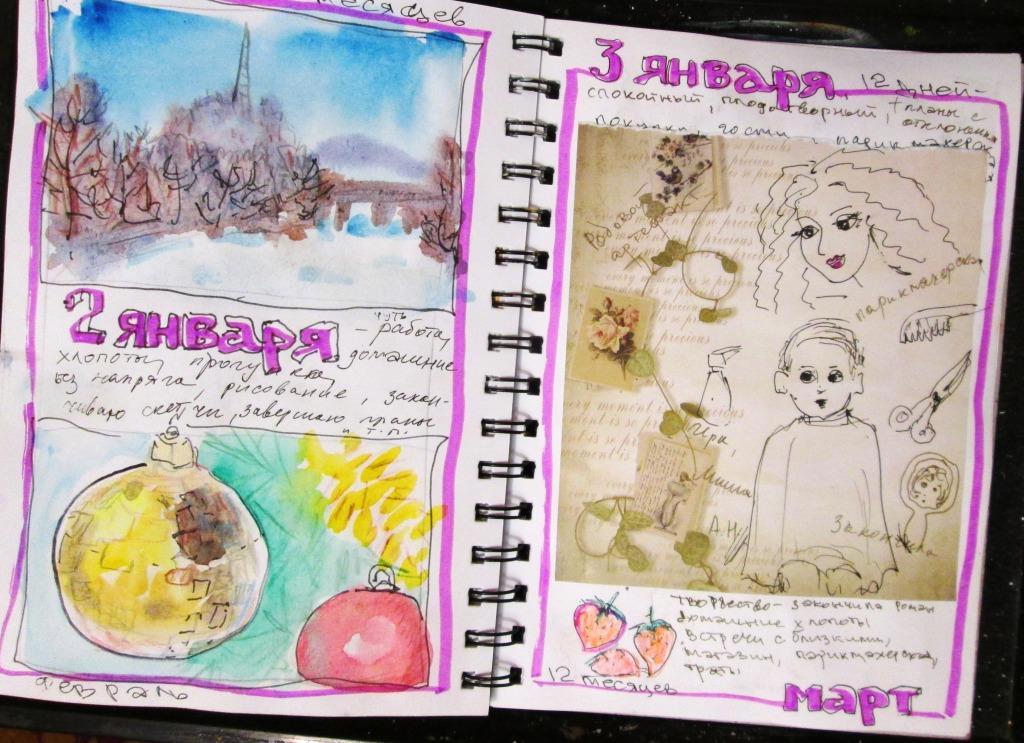 месяцев
2 января
- чуть работа,
хлопоты, прогулка, домашние
без напряга, рисование, закан-
чиваю скетчи, завершаю планы
и т.п.
февраль
3 января
12 дней-
спокойный, плодотворный, + планы с
покупки, гости, парикмахерская
парикмахерская
Ира,
Миша
А.Н.
Закончила
творчество - закончила роман
домашние хлопоты
встречи с близкими,
магазин, парикмахерская,
траты
12 месяцев
март